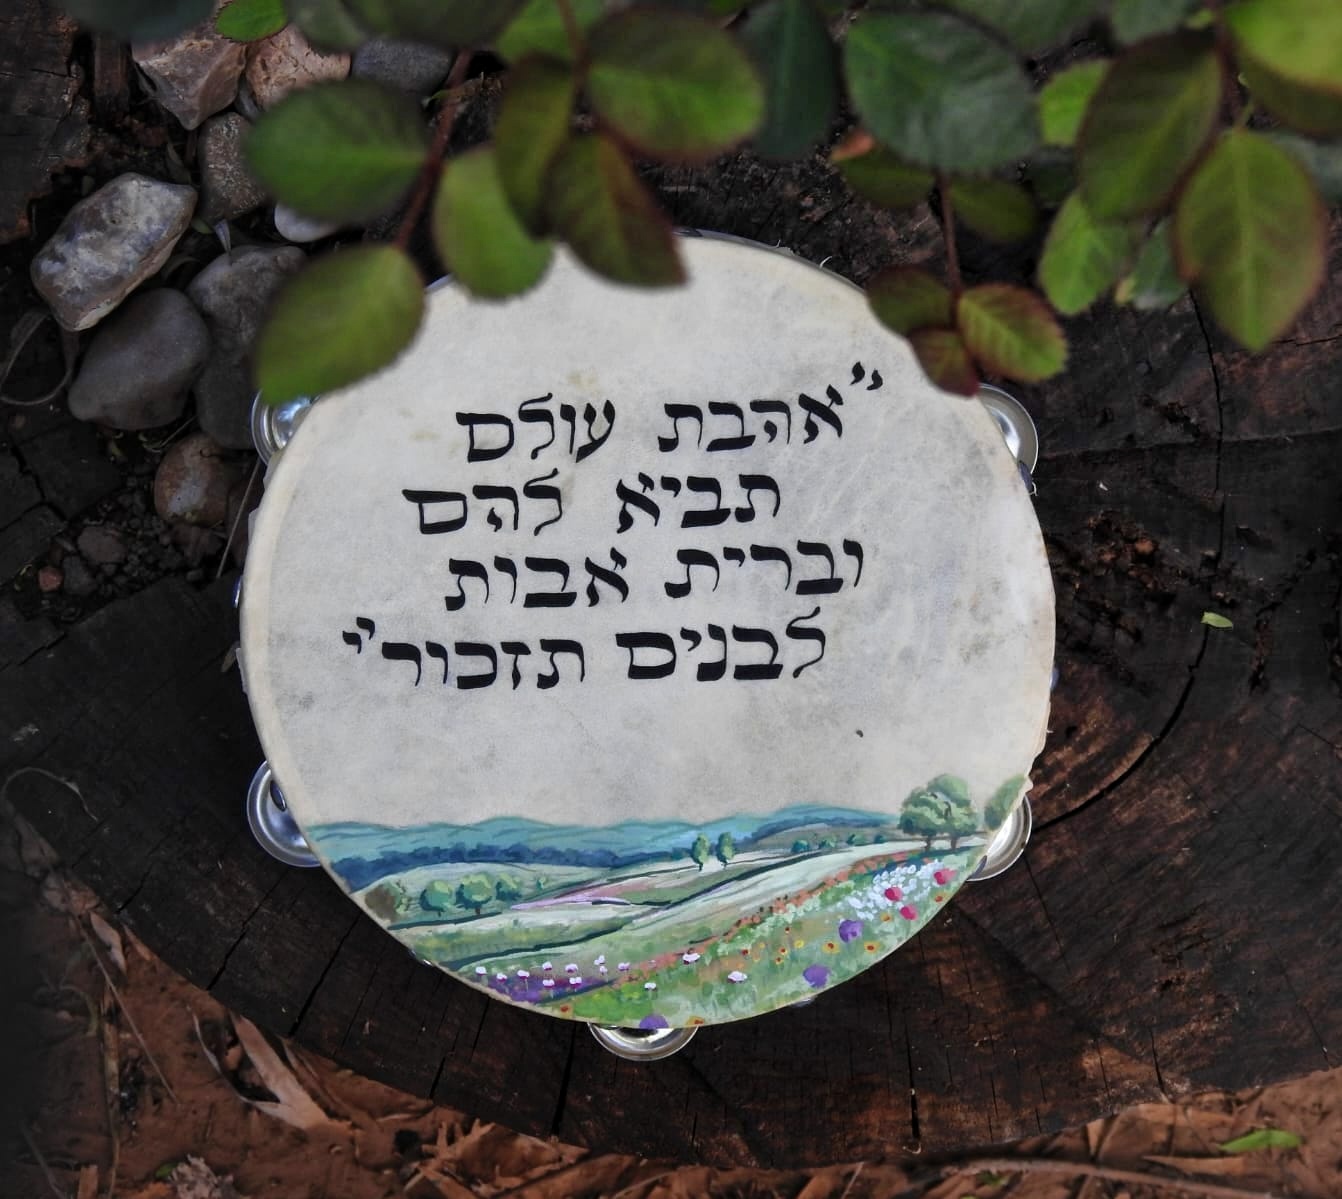 "אהבת עולם
תביא להם
וברית אבות
לבנים תזכור"